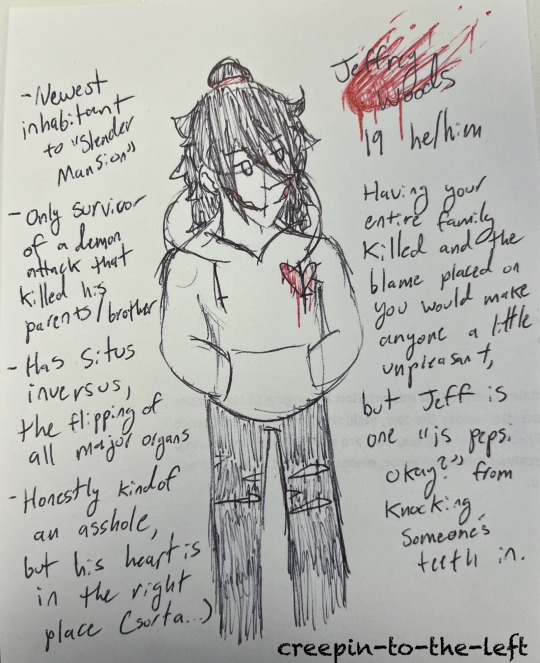 - Newest
inhabitant
to "Slender
Mansion"
- Only survivor
of a demon
attack that
killed his
parents/brother
- Has Situs
inversus,
the flipping of
all major organs
- Honestly kindof
an asshole,
but his heart is
in the right
place (sorta...)
Jeffrey
Woods
19 he/him
Having your
entire family
killed and the
blame placed on
you would make
anyone a little
unpleasant,
but Jeff is
one "is pepsi
okay?" from
knocking
someone's
teeth in.
creepin-to-the-left